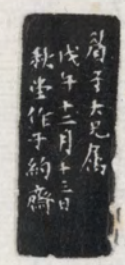 荀子大兄属
戊午十二月十三日
秋堂作于約齋